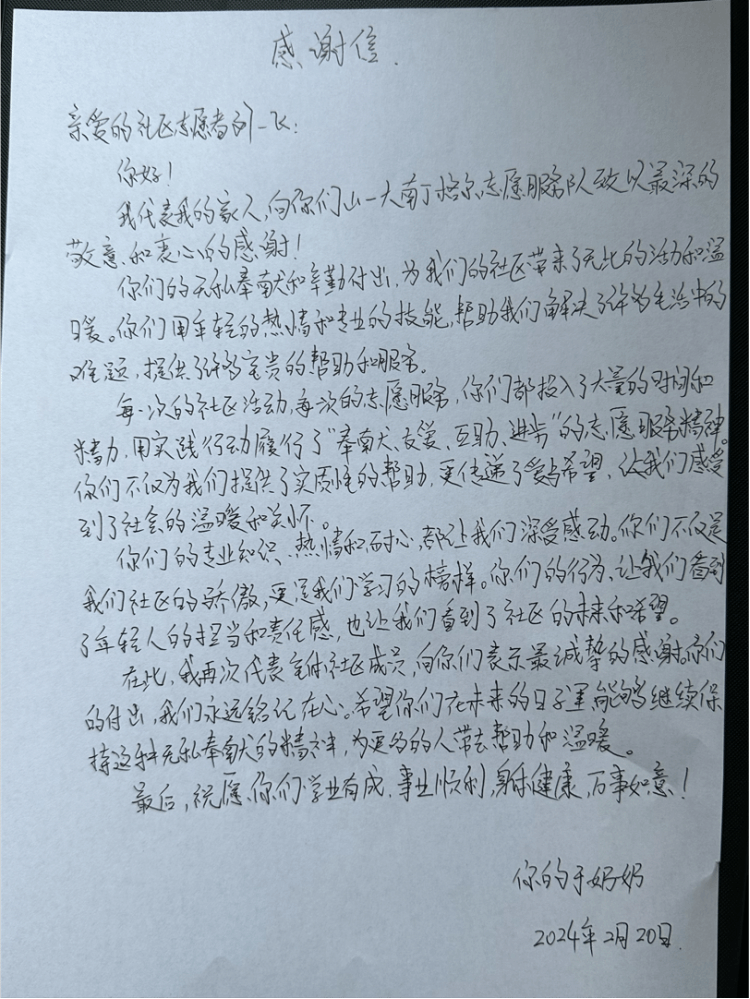 感谢信.
亲爱的社区志愿者刘一飞:
你好!
我代表我的家人,向你们山一大南丁格尔志愿服务队致以最深的
敬意和衷心的感谢!
你们的无私奉献和辛勤付出,为我们的社区带来了无比的活力和温
暖。你们用年轻的热情和专业的技能,帮助我们解决了许多生活中的
难题,提供了许多宝贵的帮助和服务。
每一次的社区活动,每次的志愿服务,你们都投入了大量的时间和
精力,用实践行动履行了“奉献、友爱、互助、进步”的志愿服务精神。
你们不仅为我们提供了实质性的帮助,更传递了爱与希望,让我们感受
到了社会的温暖和关怀。
你们的专业知识、热情和耐心,都让我们深受感动。你们不仅是
我们社区的骄傲,更是我们学习的榜样。你们的行为,让我们看到
了年轻人的担当和责任感,也让我们看到了社区的未来和希望。
在此,我再次代表全体社区成员,向你们表示最诚挚的感谢。你们
的付出,我们永远铭记在心。希望你们在未来的日子里能够继续保
持这种无私奉献的精神,为更多的人带去帮助和温暖。
最后,祝愿你们学业有成,事业顺利,身体健康,万事如意!
你的于奶奶
2024年2月20日.